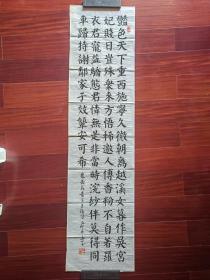 豔色天下重西施寧久微朝為越溪女暮作吳宮
妃賤日豈殊衆來方悟稀邀人傅香粉不自著羅
衣君寵益嬌態君憐無是非當時浣紗伴莫得同
車歸持謝鄰家子效顰安可希